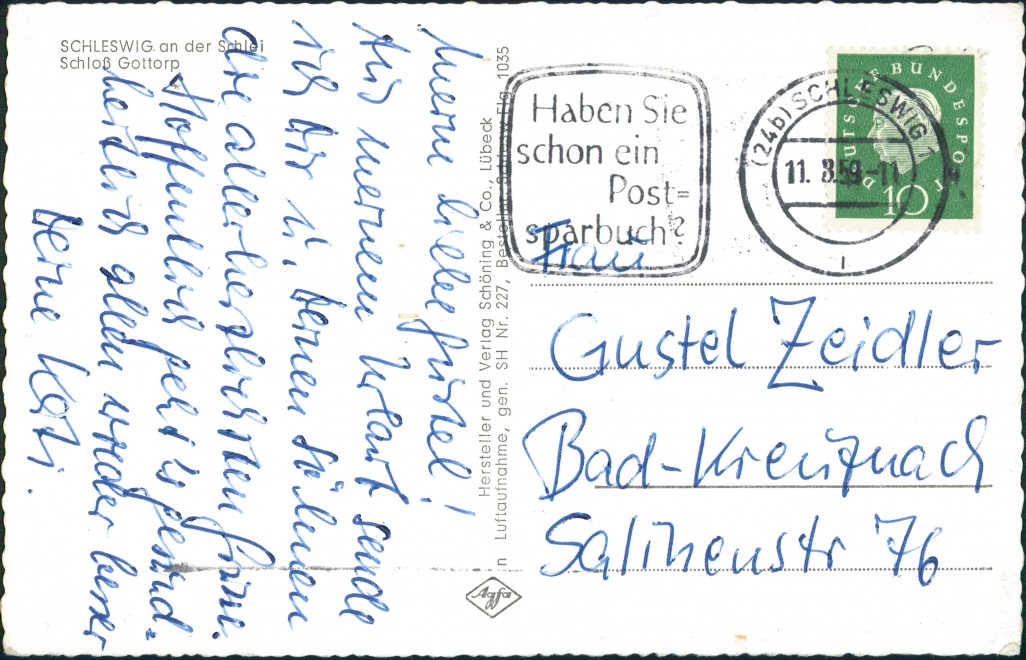 SCHLESWIG an der Schlei
Schloß Gottorp
Meine liebe Gustel!
Aus meinem Urlaub sende
ich Dir u. Deinen Söhnen
die allerherzlichsten Grüße.
Hoffentlich geht's gesund-
heitlich allen wieder besser
Deine Käti.
Hersteller und Verlag Schöning & Co., Lübeck
n Luftaufnahme, gen. SH Nr. 227, Bestellnr. Schlesw Flg. 1035
Agfa
Haben Sie
schon ein
Post=
sparbuch?
(24b) SCHLESWIG 1
11. 8.59-11
DEUTSCHE BUNDESPOST
10
Frau
Gustel Zeidler
Bad-Kreuznach
Salinenstr 76